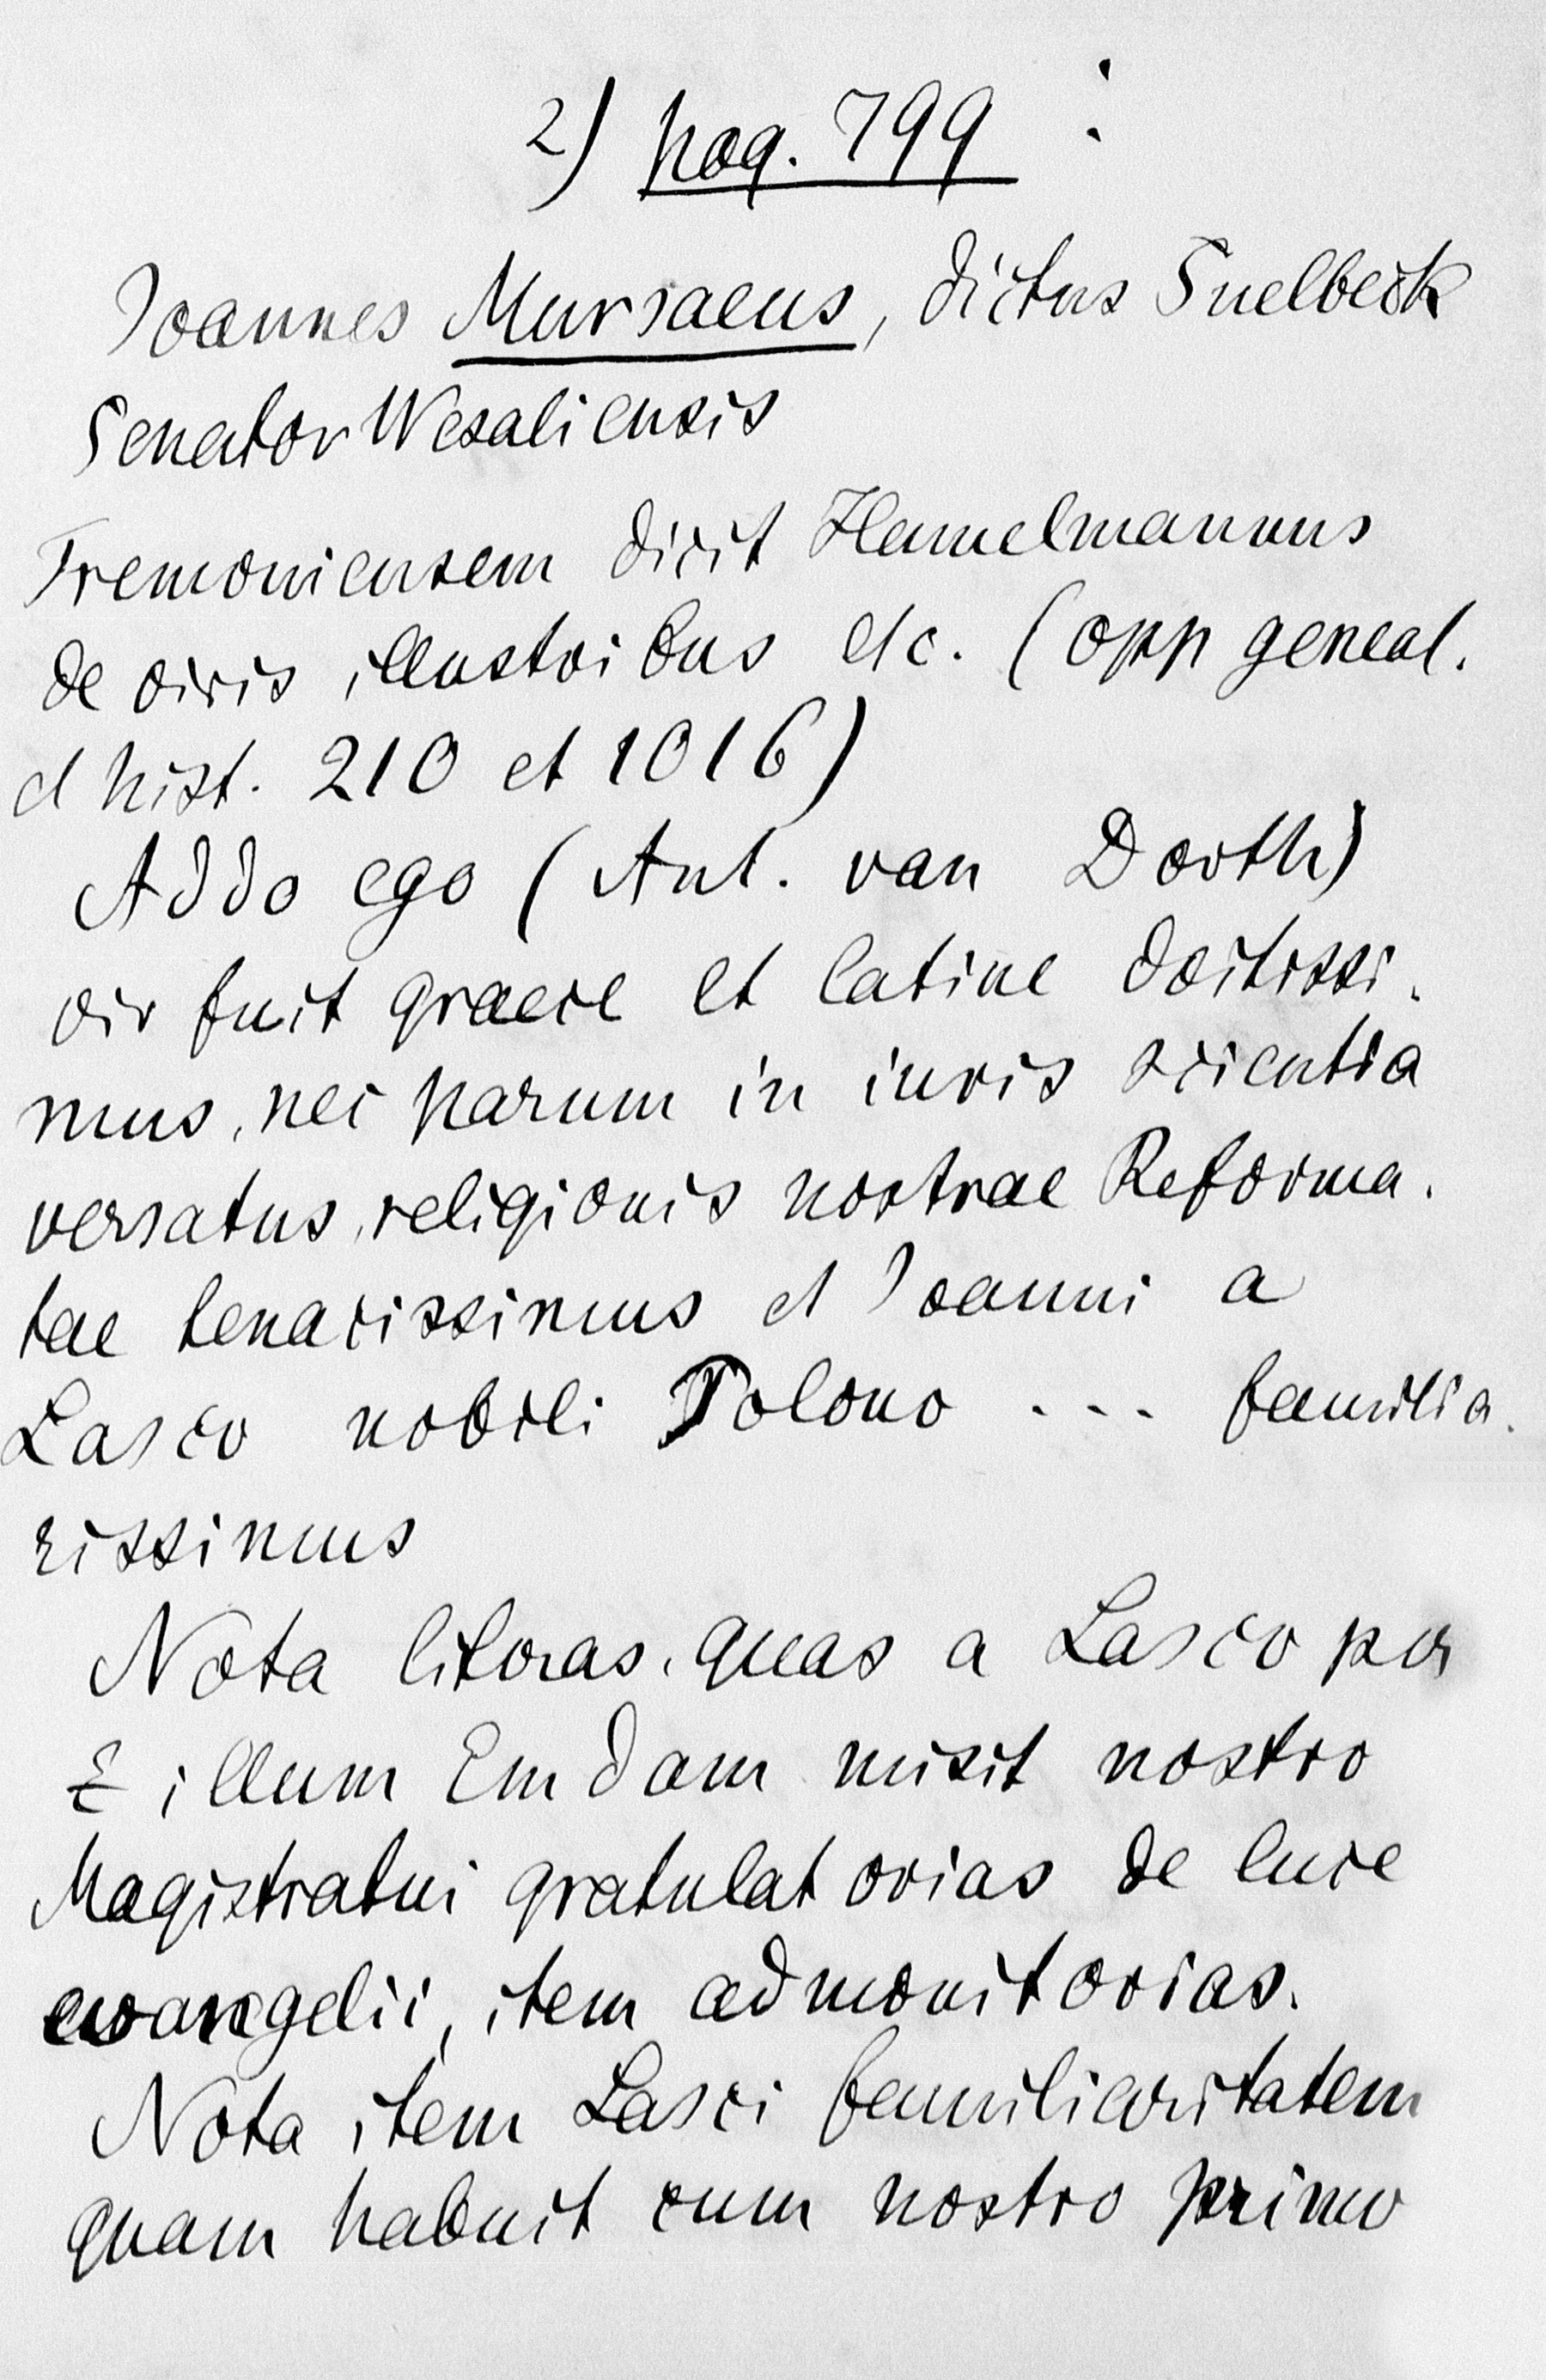 2) pag. 799 :
Joannes Mursaeus, dictus Snelbeck
Senator Wesaliensis
Tremoniensem dicit Hamelmannus
de viris illustribus etc. (opp geneal.
et hist. 210 et 1016)
Addo ego (Ant. van Dorth)
vir fuit graece et latine doctissi-
mus, nec parum in iuris scientia
versatus, religionis nostrae Reforma-
tae tenacissimus et Joanni a
Lasco nobili Polono --- familia-
rissimus
Nota literas, quas a Lasco per
illum Emdam misit nostro
Magistratui gratulatorias de luce
evangelii, item admonitorias.
Nota item Lasci familiaritatem
quam habuit cum nostro primo